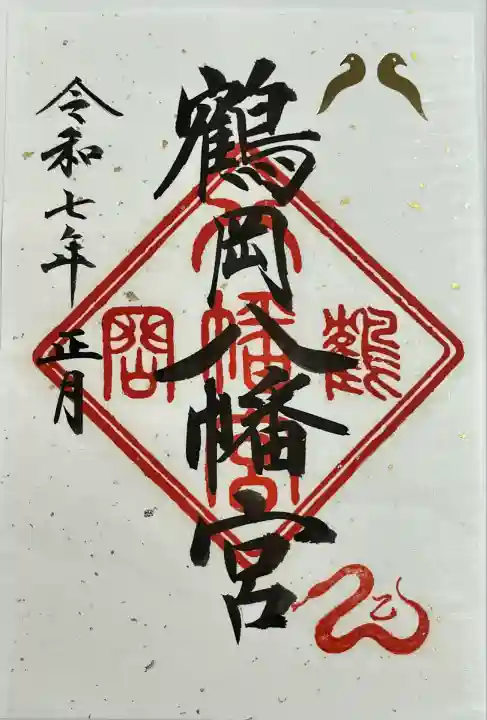 鶴岡八幡宮
令和七年 正月
鶴
岡
八幡宮